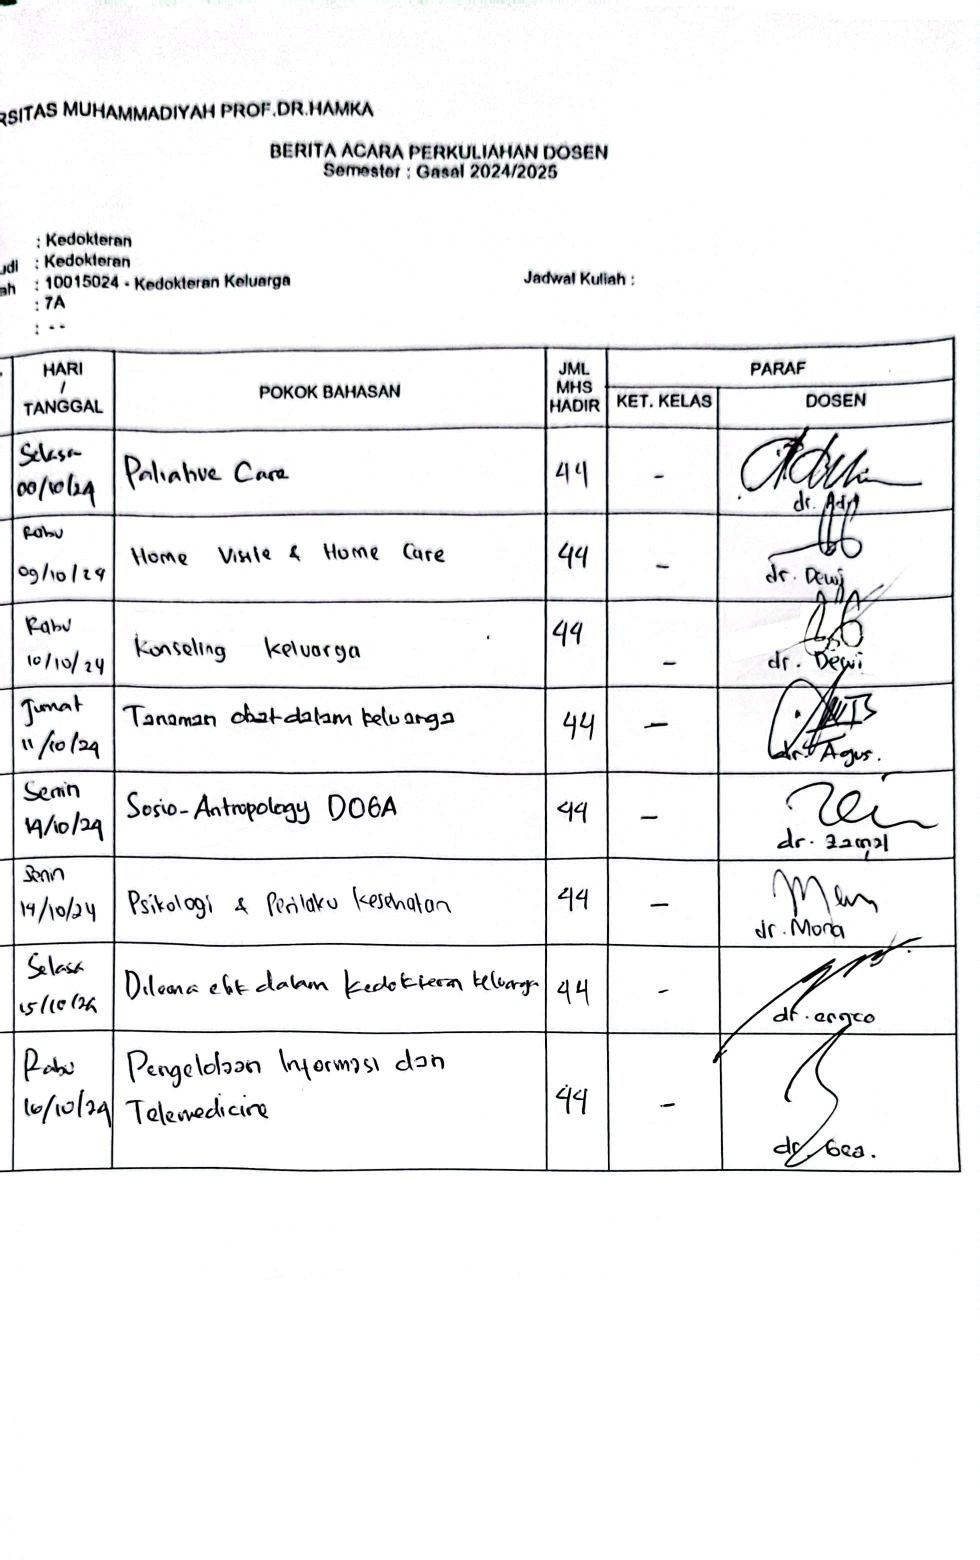 RSITAS MUHAMMADIYAH PROF.DR.HAMKA
BERITA ACARA PERKULIAHAN DOSEN
Semester : Gasal 2024/2025
: Kedokteran
udi : Kedokteran
ah : 10015024 - Kedokteran Keluarga
Jadwal Kuliah :
: 7A
: --
HARI / TANGGAL
POKOK BAHASAN
JML MHS HADIR
PARAF
KET. KELAS
DOSEN
Selasa
00/10/24
Paliative Care
44
-
dr.
Rabu
09/10/24
Home Visite & Home Care
44
-
dr. Dewi
Rabu
10/10/24
Konseling keluarga
44
-
dr. Dewi
Jumat
11/10/24
Tanaman obat dalam keluarga
44
-
dr. Agus.
Senin
14/10/24
Sosio-Antropology DOGA
44
-
dr. Zamal
Senin
14/10/24
Psikologi & Perilaku Kesehatan
44
-
dr. Mona
Selasa
15/10/24
Dilema etik dalam kedokteran keluarga
44
-
dr.
Rabu
16/10/24
Pengelolaan Informasi dan
Telemedicine
44
-
dr. Gea.